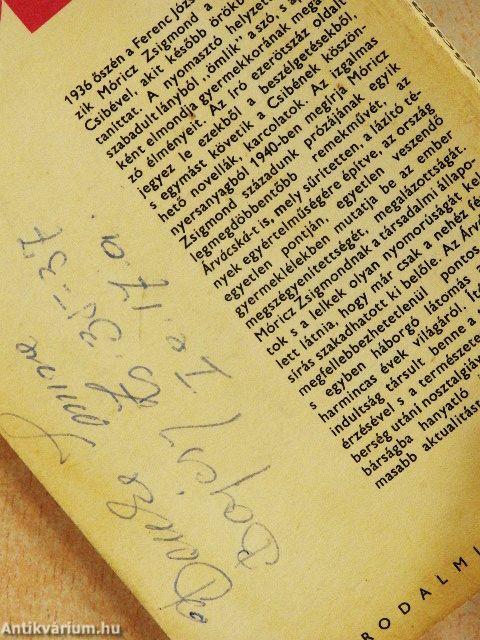 1936 őszén a Ferenc Józs
zik Móricz Zsigmond a
Csibével, akit később örökb
taníttat. A nyomasztó helyzet
szabadult lányból „ömlik" a szó, s a
ként elmondja gyermekkorának mega
zó élményeit. Az író ezerötszáz oldalt
jegyez le ezekből a beszélgetésekből,
s egymást követik a Csibének köszön-
hető novellák, karcolatok. Az izgalmas
nyersanyagból 1940-ben megírja Móricz
Zsigmond századunk prózájának egyik
legmegdöbbentőbb remekművét, az
Árvácská-t is, mely sűrítetten, a lázító té-
nyek egyértelműségére építve, az ország
egyetlen pontján, egyetlen veszendő
gyermeklélekben mutatja be az ember
megszégyenítettségét, megalázottságát.
Móricz Zsigmondnak a társadalmi állapo-
tok s a lelkek olyan nyomorúságát kel
lett látnia, hogy már csak a nehéz fé
sírás szakadhatott ki belőle. Az Árv
megfellebbezhetetlenül pontos
s egyben háborgó látomás a
harmincas évek világáról. Író
indultság társult benne a
érzésével s a természete
berség utáni nosztalgiáv
bárságba hanyatló
masabb aktualitást
35-37
17. a.
RODALMI
Antikvárium.hu